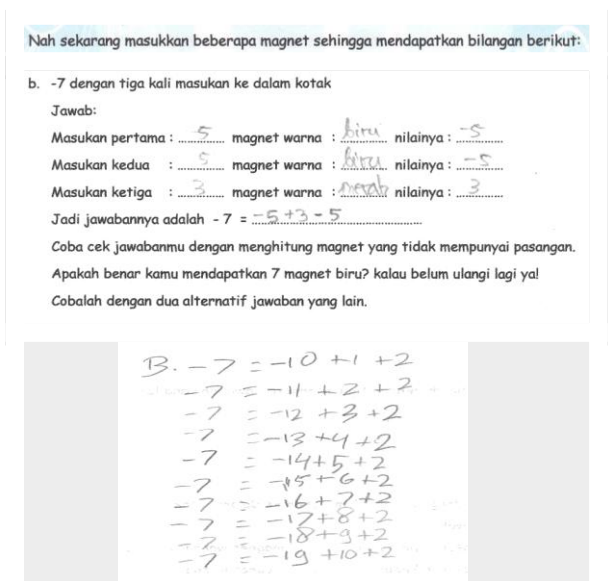 Nah sekarang masukkan beberapa magnet sehingga mendapatkan bilangan berikut:
b. -7 dengan tiga kali masukan ke dalam kotak
Jawab:
Masukan pertama : 5 magnet warna : biru nilainya : -5
Masukan kedua : 5 magnet warna : biru nilainya : -5
Masukan ketiga : 3 magnet warna : merah nilainya : 3
Jadi jawabannya adalah - 7 = -5 +3 - 5
Coba cek jawabanmu dengan menghitung magnet yang tidak mempunyai pasangan.
Apakah benar kamu mendapatkan 7 magnet biru? kalau belum ulangi lagi ya!
Cobalah dengan dua alternatif jawaban yang lain.
B. -7 = -10 +1 +2
-7 = -11 +2 +2
-7 = -12 +3 +2
-7 = -13 +4 +2
-7 = -14 +5 +2
-7 = -15 +6 +2
-7 = -16 +7 +2
-7 = -17 +8 +2
-7 = -18 +9 +2
-7 = -19 +10 +2